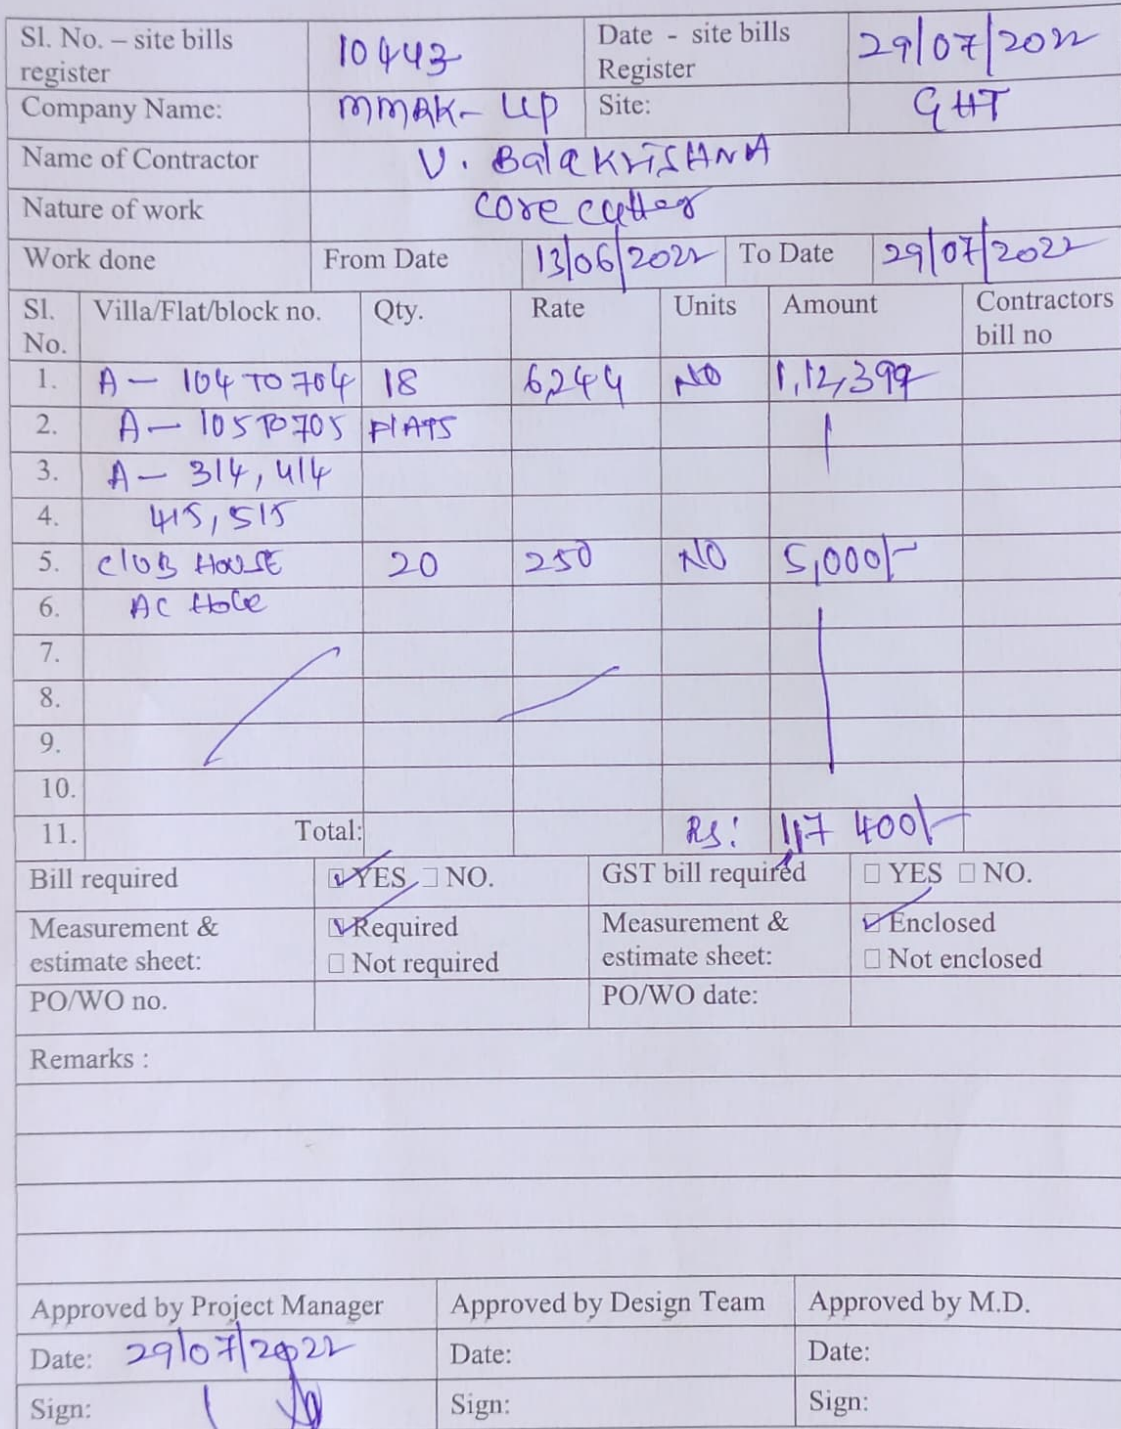 Sl. No. – site bills register 10443 Date - site bills Register 29/07/2022
Company Name: MMRK- LLP Site: GHT
Name of Contractor V. Balakrishna
Nature of work core cutter
Work done From Date 13/06/2022 To Date 29/07/2022
Sl. No. Villa/Flat/block no. Qty. Rate Units Amount Contractors bill no
1. A - 104 TO 704 18 6,244 NO 1,12,399
2. A - 105 TO 705 FlATS
3. A - 314, 414
4. 415, 515
5. ClUB HOUSE 20 250 NO 5,000/-
6. AC Hole
7.
8.
9.
10.
11. Total: Rs: 1,17 400/-
Bill required YES NO. GST bill required YES NO.
Measurement & estimate sheet: Required Measurement & estimate sheet: Enclosed
Not required Not enclosed
PO/WO no. PO/WO date:
Remarks :
Approved by Project Manager Approved by Design Team Approved by M.D.
Date: 29/07/2022 Date: Date:
Sign: Sign: Sign: